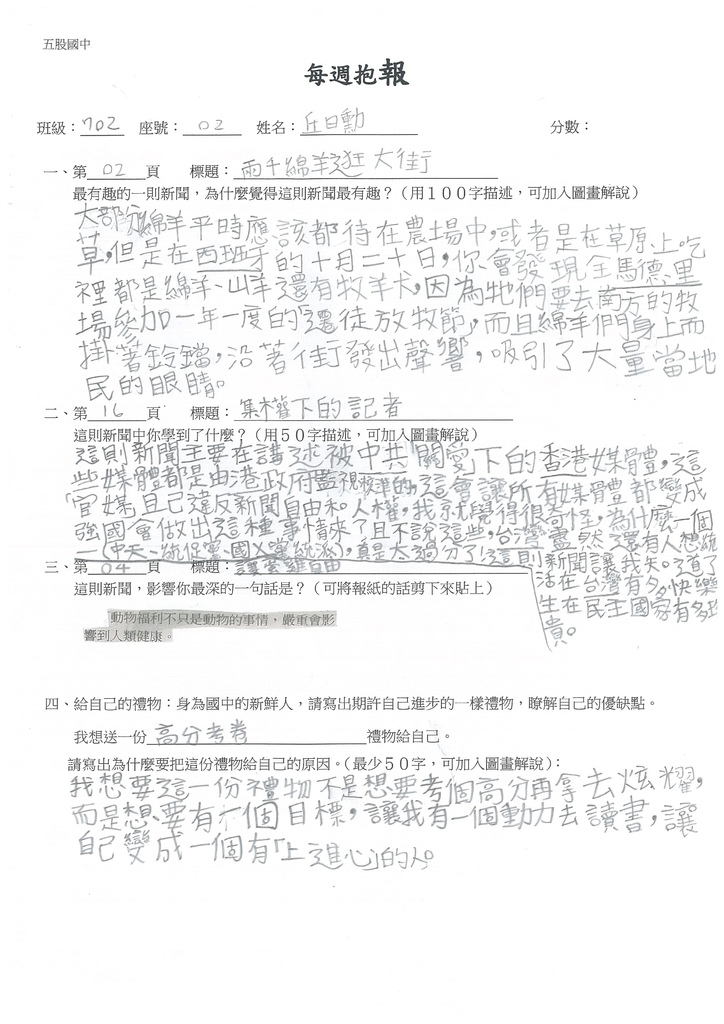 五股國中
每週抱報
班級：702 座號：02 姓名：丘日勳 分數：
一、第02頁 標題：兩千綿羊逛大街
最有趣的一則新聞，為什麼覺得這則新聞最有趣？（用１００字描述，可加入圖畫解說）
大部分綿羊平時應該都待在農場中，或者是在草原上吃
草，但是在西班牙的十月二十日，你會發現全馬德里
裡都是綿羊、山羊還有牧羊犬，因為牠們要去南方的牧
場參加一年一度的「遷徒放牧節」，而且綿羊們身上而
掛著鈴鐺，沿著街發出聲響，吸引了大量當地
民的眼睛。
二、第16頁 標題：集權下的記者
這則新聞中你學到了什麼？（用５０字描述，可加入圖畫解說）
這則新聞主要在講述被中共「關愛」下的香港媒體，這
些媒體都是由港政府監視校準的，這會讓所有媒體都變成
「官媒」且已違反新聞自由和人權，我就覺得很奇怪，為什麼一個
強國會做出這種事情來了且不說這些，台灣盡然還有人想統
一（中天、統促黨、國X黨統派），真是太過分了！這則
新聞讓我知道了
活在台灣有多快樂
生在民主國家有多珍
貴。
三、第04頁 標題：
這則新聞，影響你最深的一句話是？（可將報紙的話剪下來貼上）
動物福利不只是動物的事情，嚴重會影
響到人類健康。
四、給自己的禮物：身為國中的新鮮人，請寫出期許自己進步的一樣禮物，瞭解自己的優缺點。
我想送一份高分考卷禮物給自己。
請寫出為什麼要把這份禮物給自己的原因。（最少５０字，可加入圖畫解說）：
我想要這一份禮物不是想要考個高分再拿去炫耀，
而是想要有一個目標，讓我有一個動力去讀書，讓
自己變成一個有「上進心」的人。